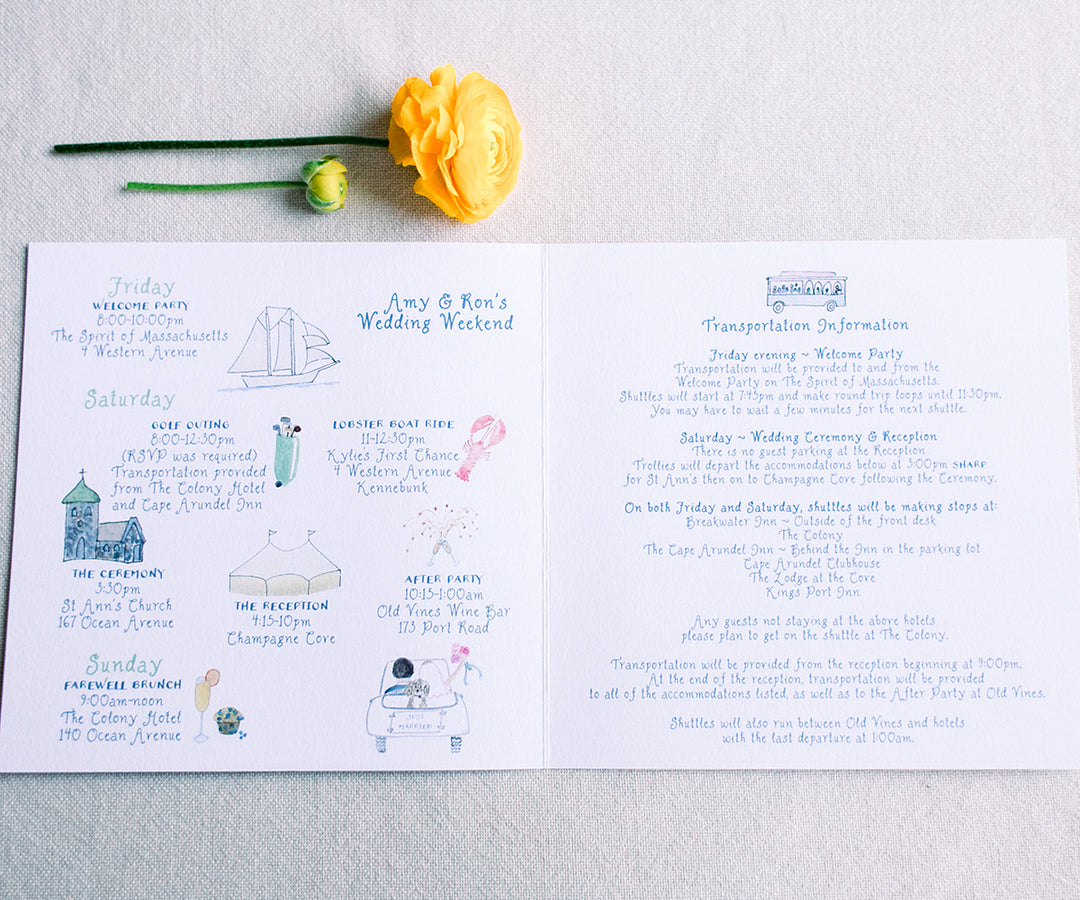 Friday
WELCOME PARTY
8:00-10:00pm
The Spirit of Massachusetts
4 Western Avenue
Amy & Ron's
Wedding Weekend
Saturday
GOLF OUTING
8:00-12:30pm
(RSVP was required)
Transportation provided
from The Colony Hotel
and Cape Arundel Inn
LOBSTER BOAT RIDE
11-12:30pm
Kylie's First Chance
4 Western Avenue
Kennebunk
THE CEREMONY
3:30pm
St Ann's Church
167 Ocean Avenue
THE RECEPTION
4:15-10pm
Champagne Cove
AFTER PARTY
10:15-1:00am
Old Vines Wine Bar
173 Port Road
Sunday
FAREWELL BRUNCH
9:00am-noon
The Colony Hotel
140 Ocean Avenue
JUST
MARRIED
Transportation Information
Friday evening ~ Welcome Party
Transportation will be provided to and from the
Welcome Party on The Spirit of Massachusetts.
Shuttles will start at 7:45pm and make round trip loops until 11:30pm.
You may have to wait a few minutes for the next shuttle.
Saturday ~ Wedding Ceremony & Reception
There is no guest parking at the Reception
Trollies will depart the accommodations below at 3:00pm SHARP
for St Ann's then on to Champagne Cove following the Ceremony.
On both Friday and Saturday, shuttles will be making stops at:
Breakwater Inn ~ Outside of the front desk
The Colony
The Cape Arundel Inn ~ Behind the Inn in the parking lot
Cape Arundel Clubhouse
The Lodge at the Cove
Kings Port Inn
Any guests not staying at the above hotels
please plan to get on the shuttle at The Colony.
Transportation will be provided from the reception beginning at 9:00pm.
At the end of the reception, transportation will be provided
to all of the accommodations listed, as well as to the After Party at Old Vines.
Shuttles will also run between Old Vines and hotels
with the last departure at 1:00am.